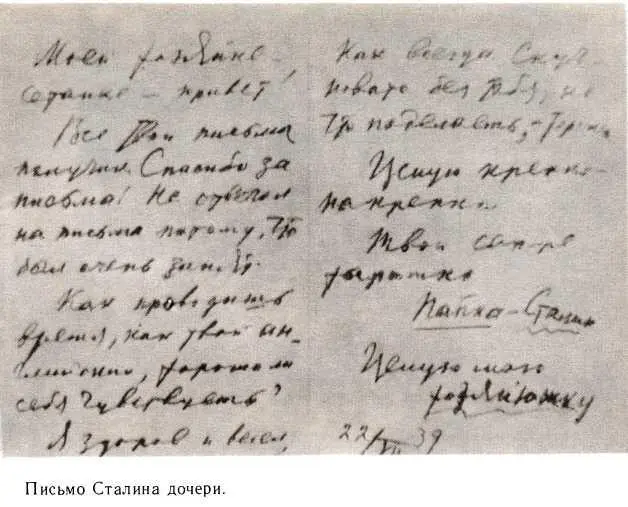 Моей хозяйке –
Сетанке – привет!
Все твои письма
получил. Спасибо за
письма! Не отвечал
на письма потому, что
был очень занят.
Как проводишь
время, как твой ан-
глийский, хорошо ли
себя чувствуешь?
Я здоров и весел,
как всегда. Скуч-
новато без тебя, но
что поделаешь, –
Целую крепко-
накрепко.
Твой
Папка-Сталин
Целую мою
хозяюшку
22/VII 39
Письмо Сталина дочери.